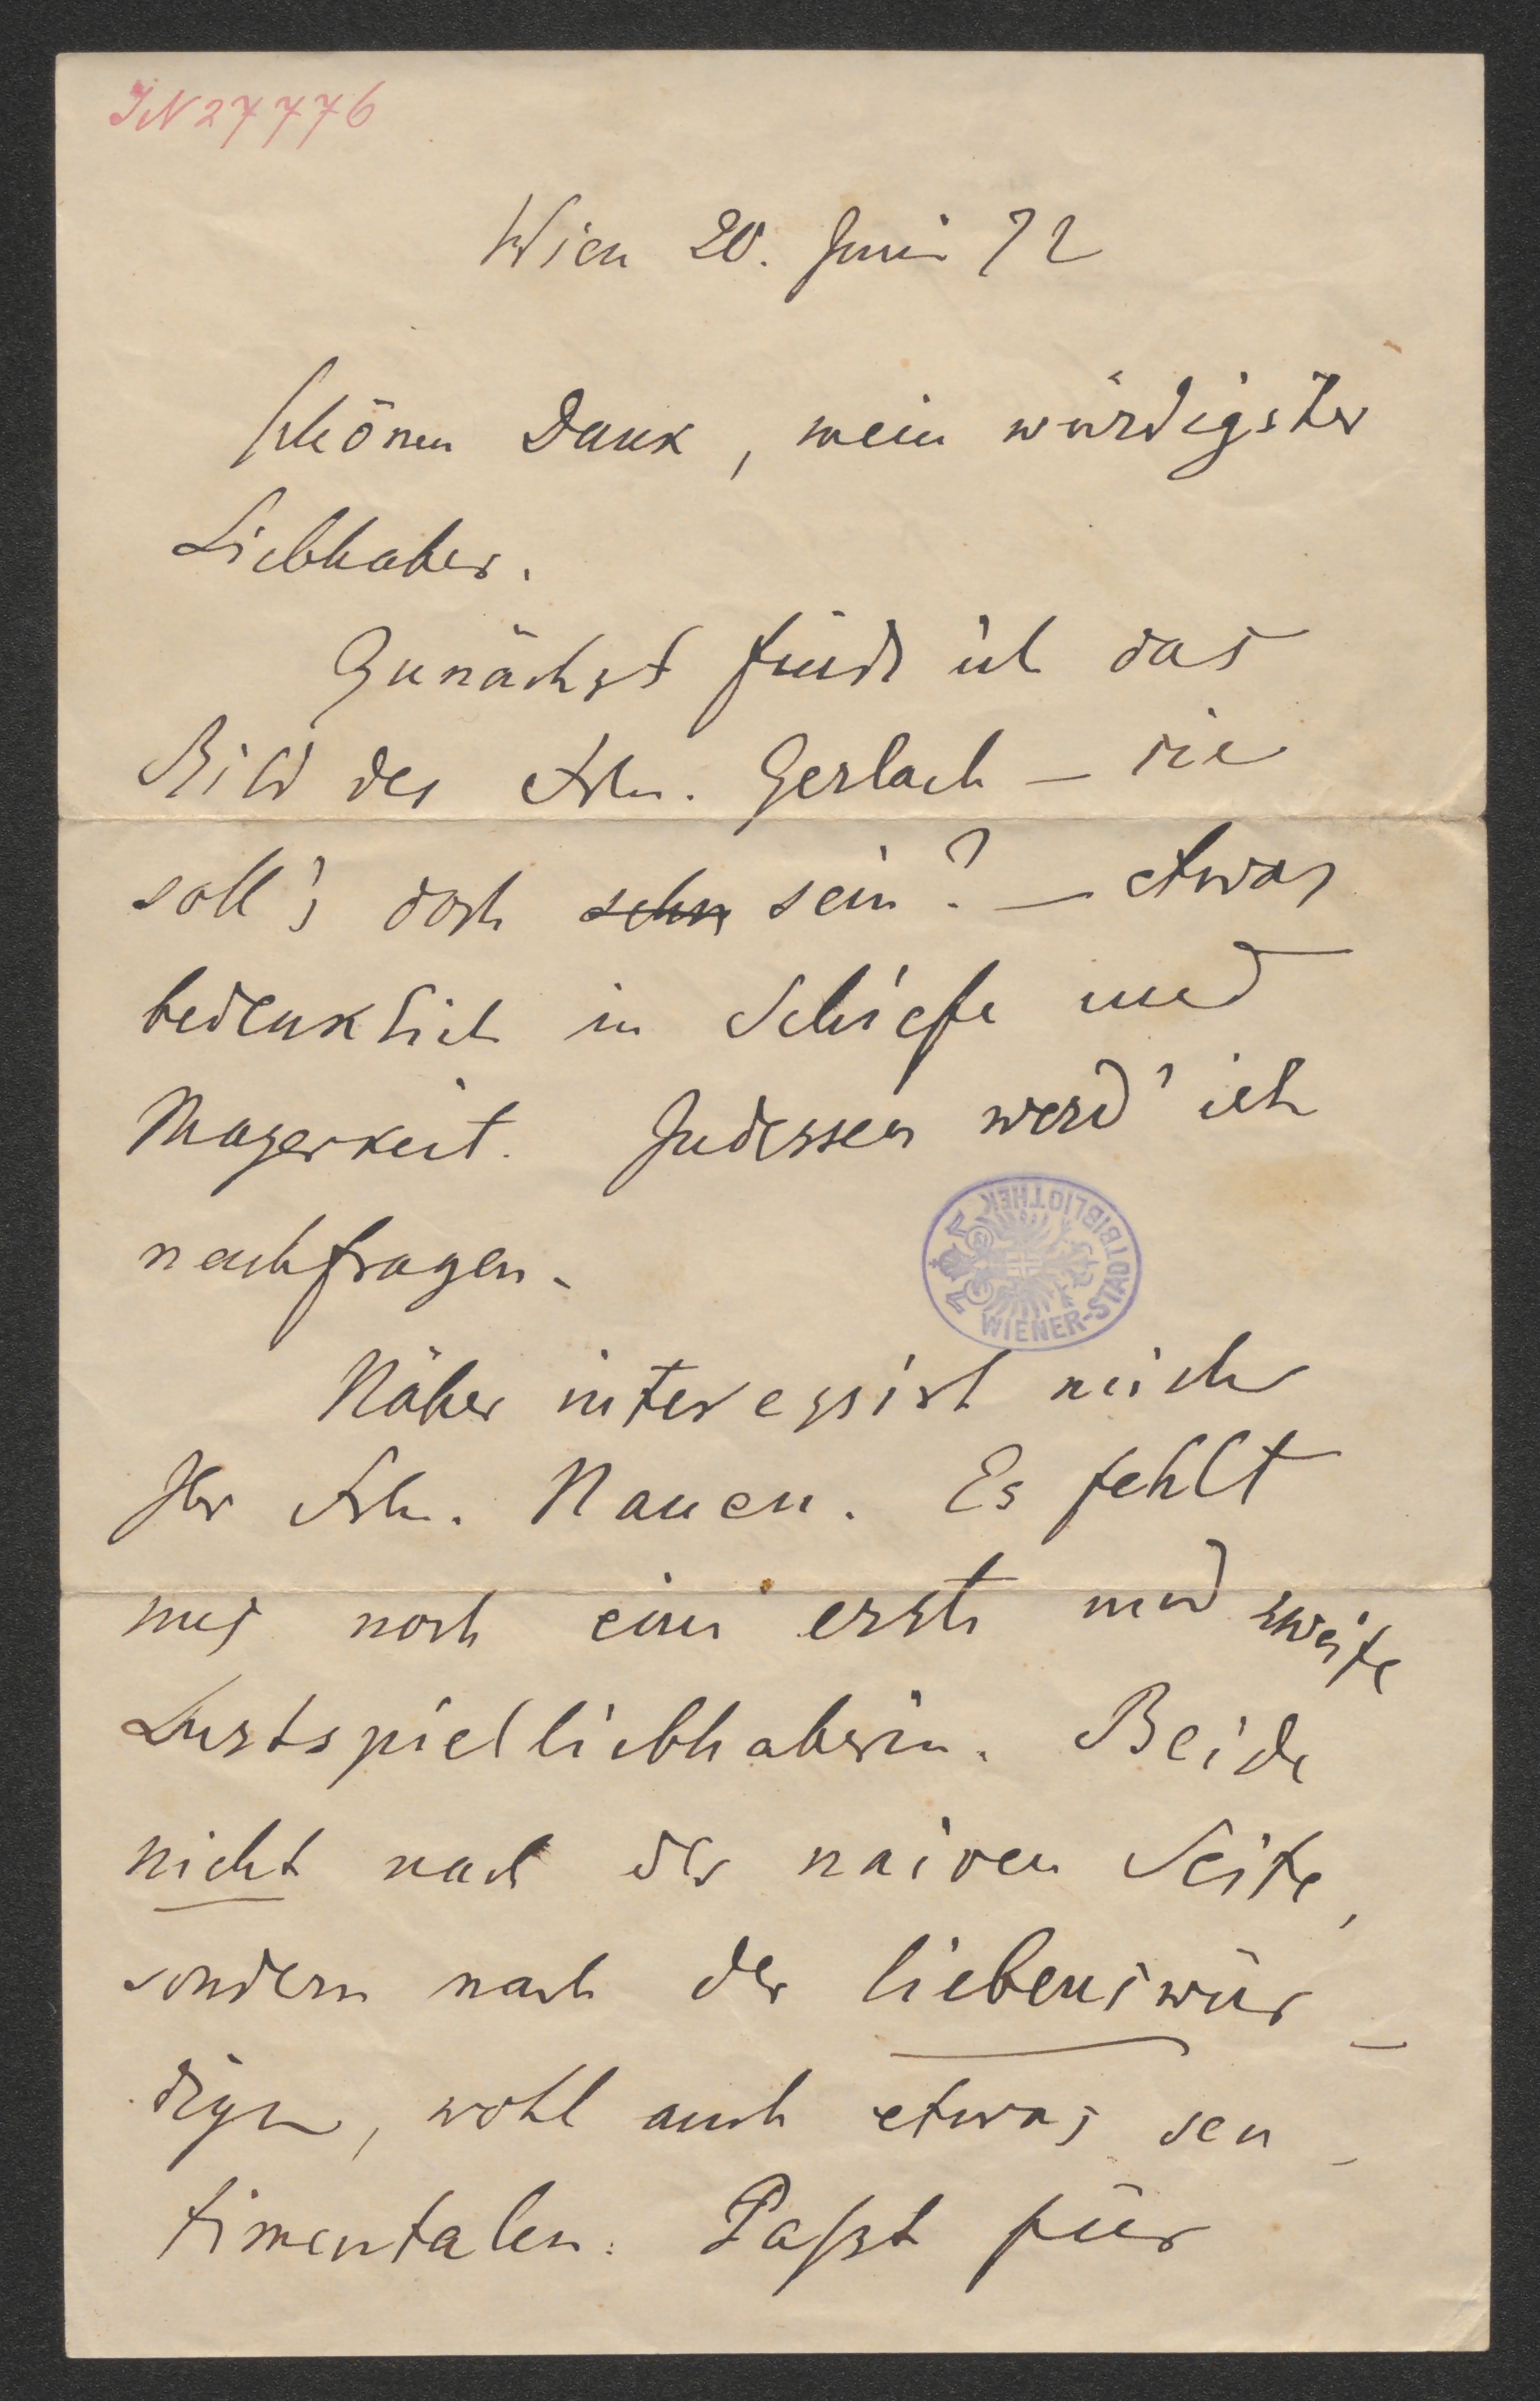 IN 27776
Wien 20. Juni 72
Schönen Dank, mein würdigster
Liebhaber.
Zunächst finde ich das
Bild des Frln. Gerlach – sie
soll's doch sein? – etwas
bedenklich in Schiefe und
Magerkeit. Indessen werd' ich
nachfragen.
Näher interessirt mich
Ihr Frln. Nauen. Es fehlt
mir noch eine erste und zweite
Lustspielliebhaberin. Beide
nicht nach der naiven Seite,
sondern nach der liebenswür-
digen, wohl auch etwas sen-
timentalen. Paßt für
WIENER-STADTBIBLIOTHEK